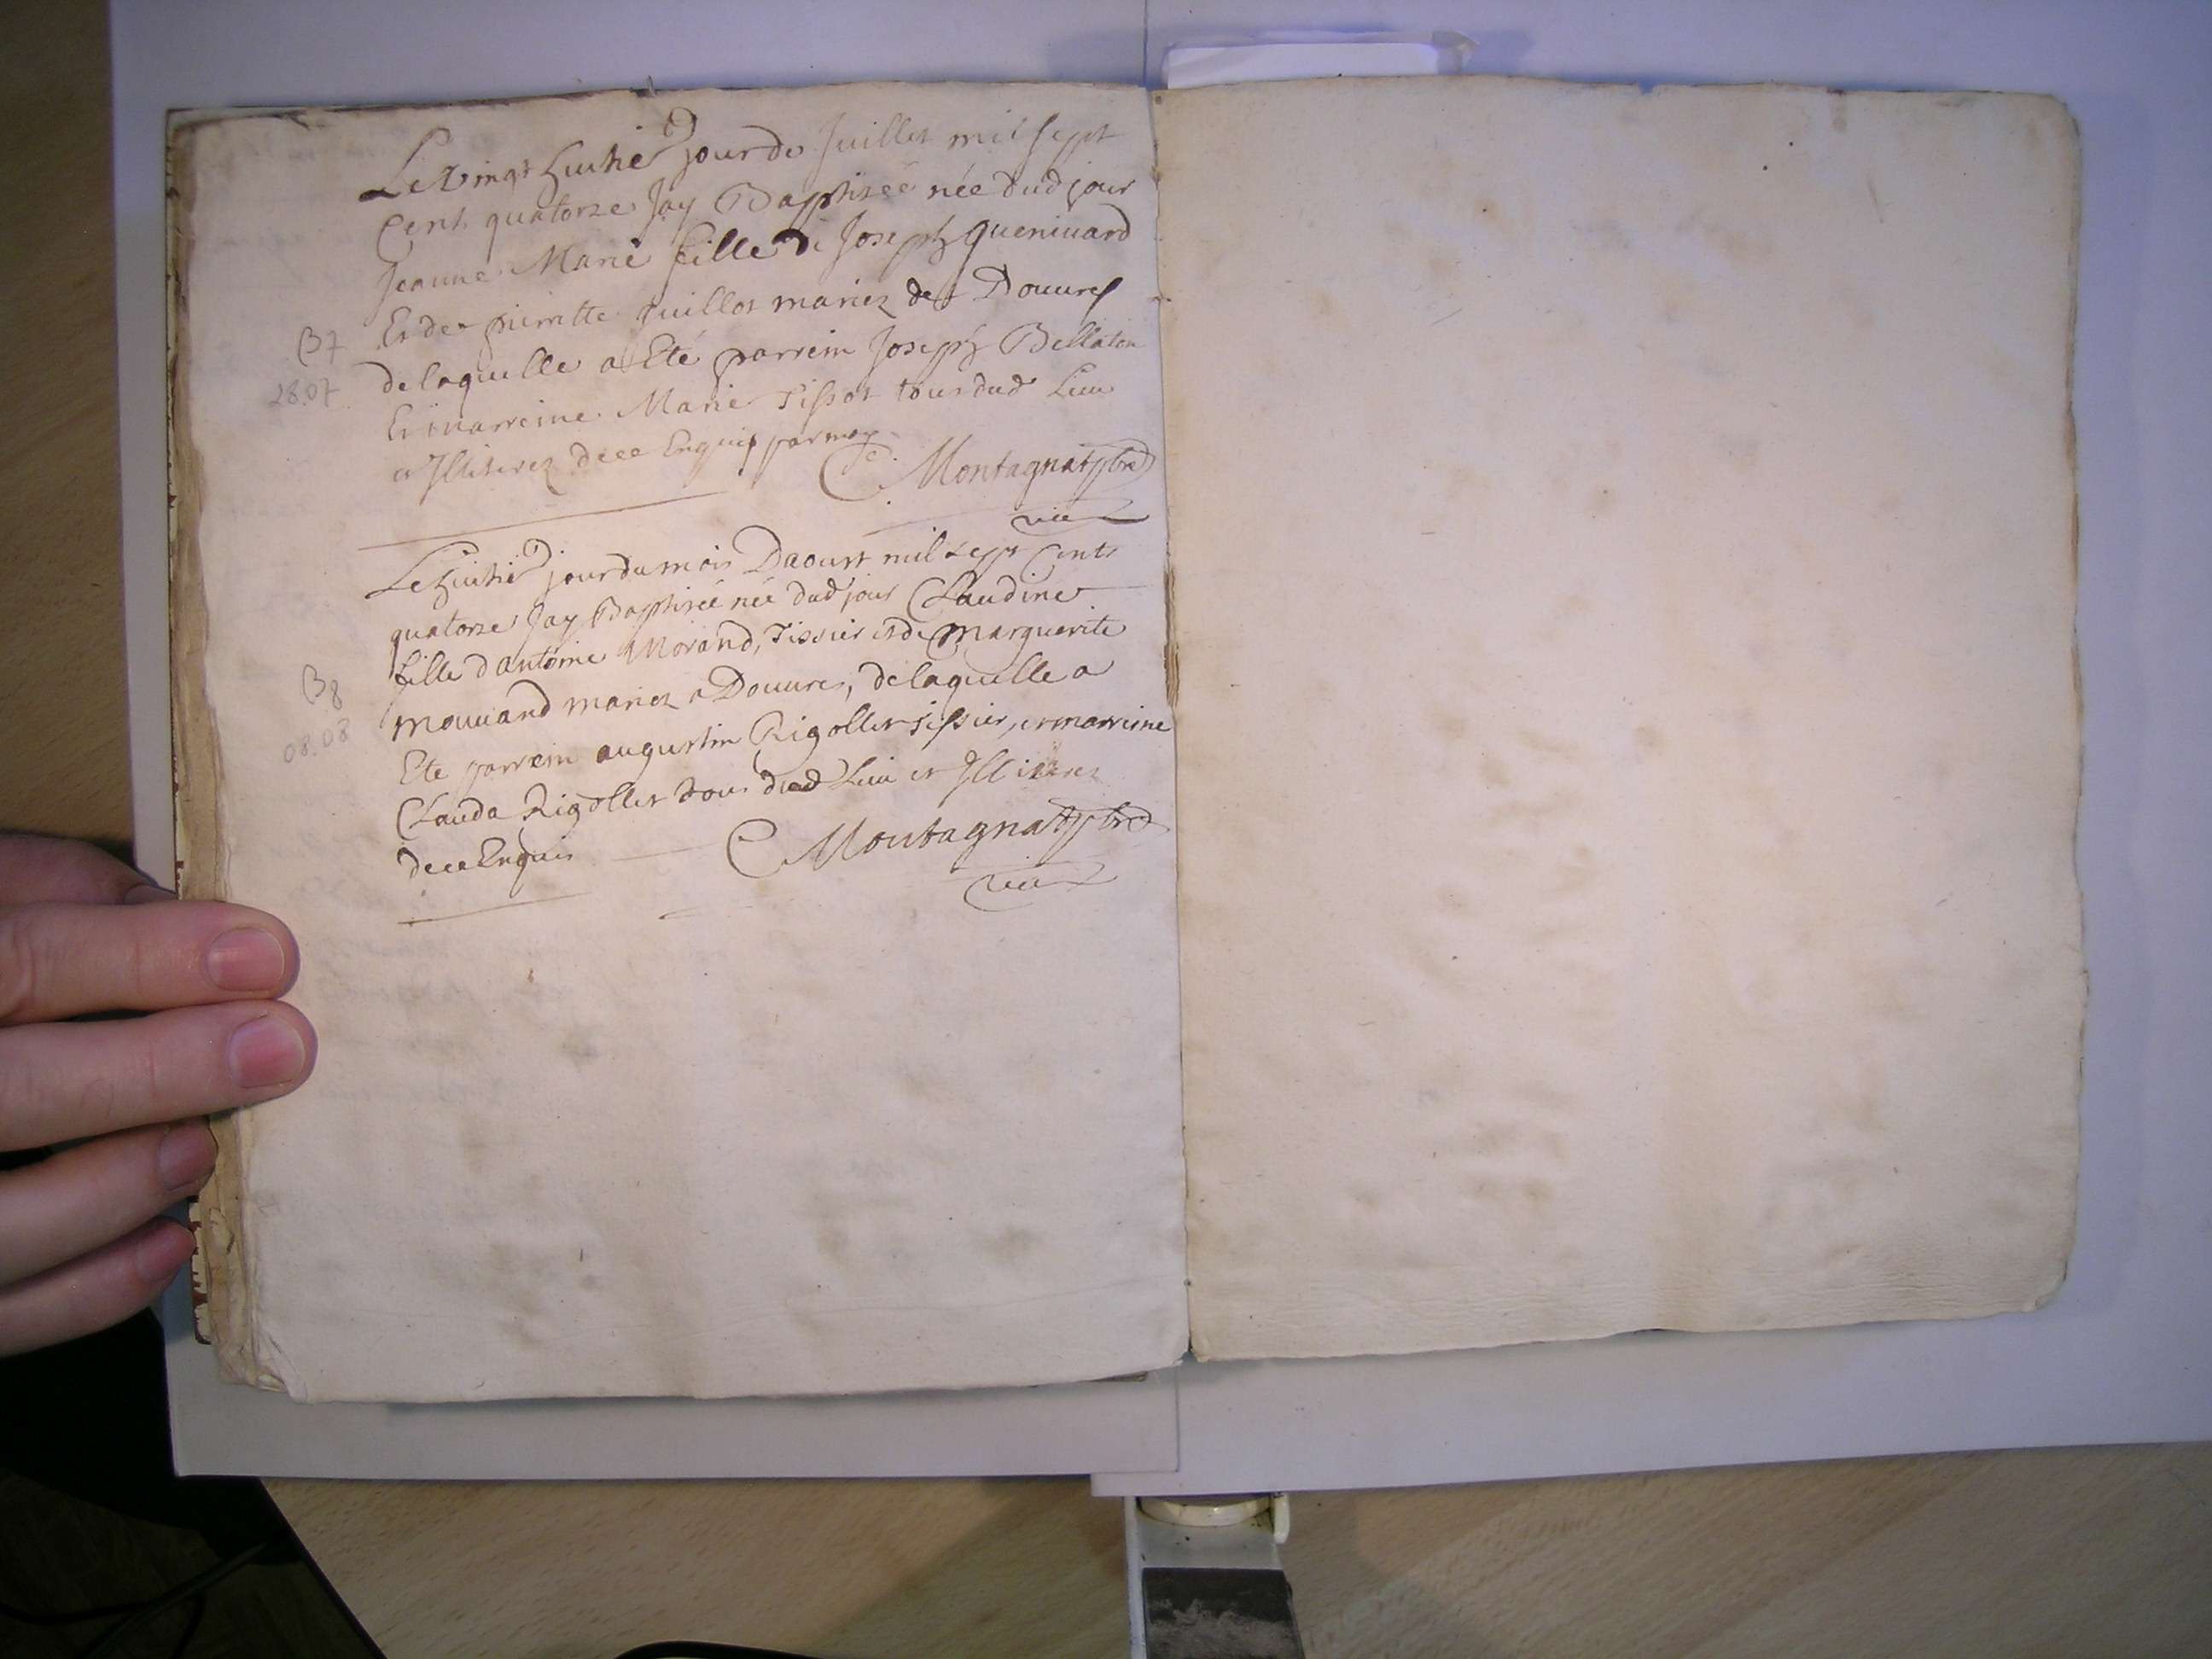 Le vingt huitie jour de Juillet mil sept
Cent quatorze Jay Baptisée née dud jour
Jeanne Marie fille de Joseph Quenivard
Et de pierrette Juillot mariez de Douures
B7
28.07
de laquelle a Eté parrein Joseph Bellaton
Et marreine Marie Tissot tous dud Lieu
et Illiterez de ce Enquis par moy
C Montagnat pbre
vic
Le huitie jour du mois Daoust mil sept Cents
quatorze Jay Baptisée née dud jour Claudine
fille dantoine Morand, Tissier et de Marguerite
B8
08.08
mouuand mariez a Douures, de laquelle a
Ete parrein augustin Rigollet Tissier, et marreine
Clauda Rigollet tous dud Lieu et Illiterez
de ce Enquis
C Montagnat pbre
vic